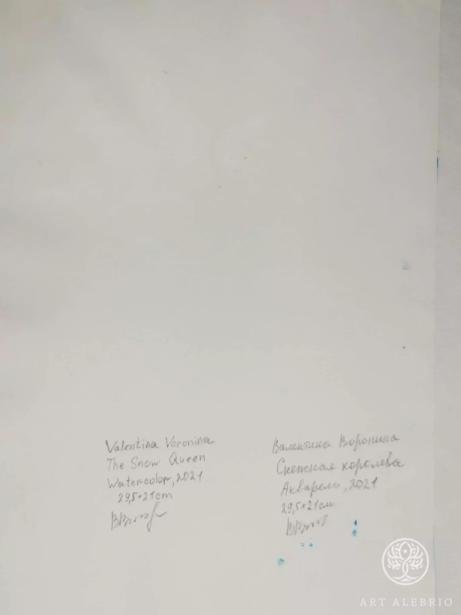 Valentina Voronina
The Snow Queen
Watercolor, 2021
29,5×21cm
Валентина Воронина
Снежная королева
Акварель, 2021
29,5×21см
ART ALEBRIO